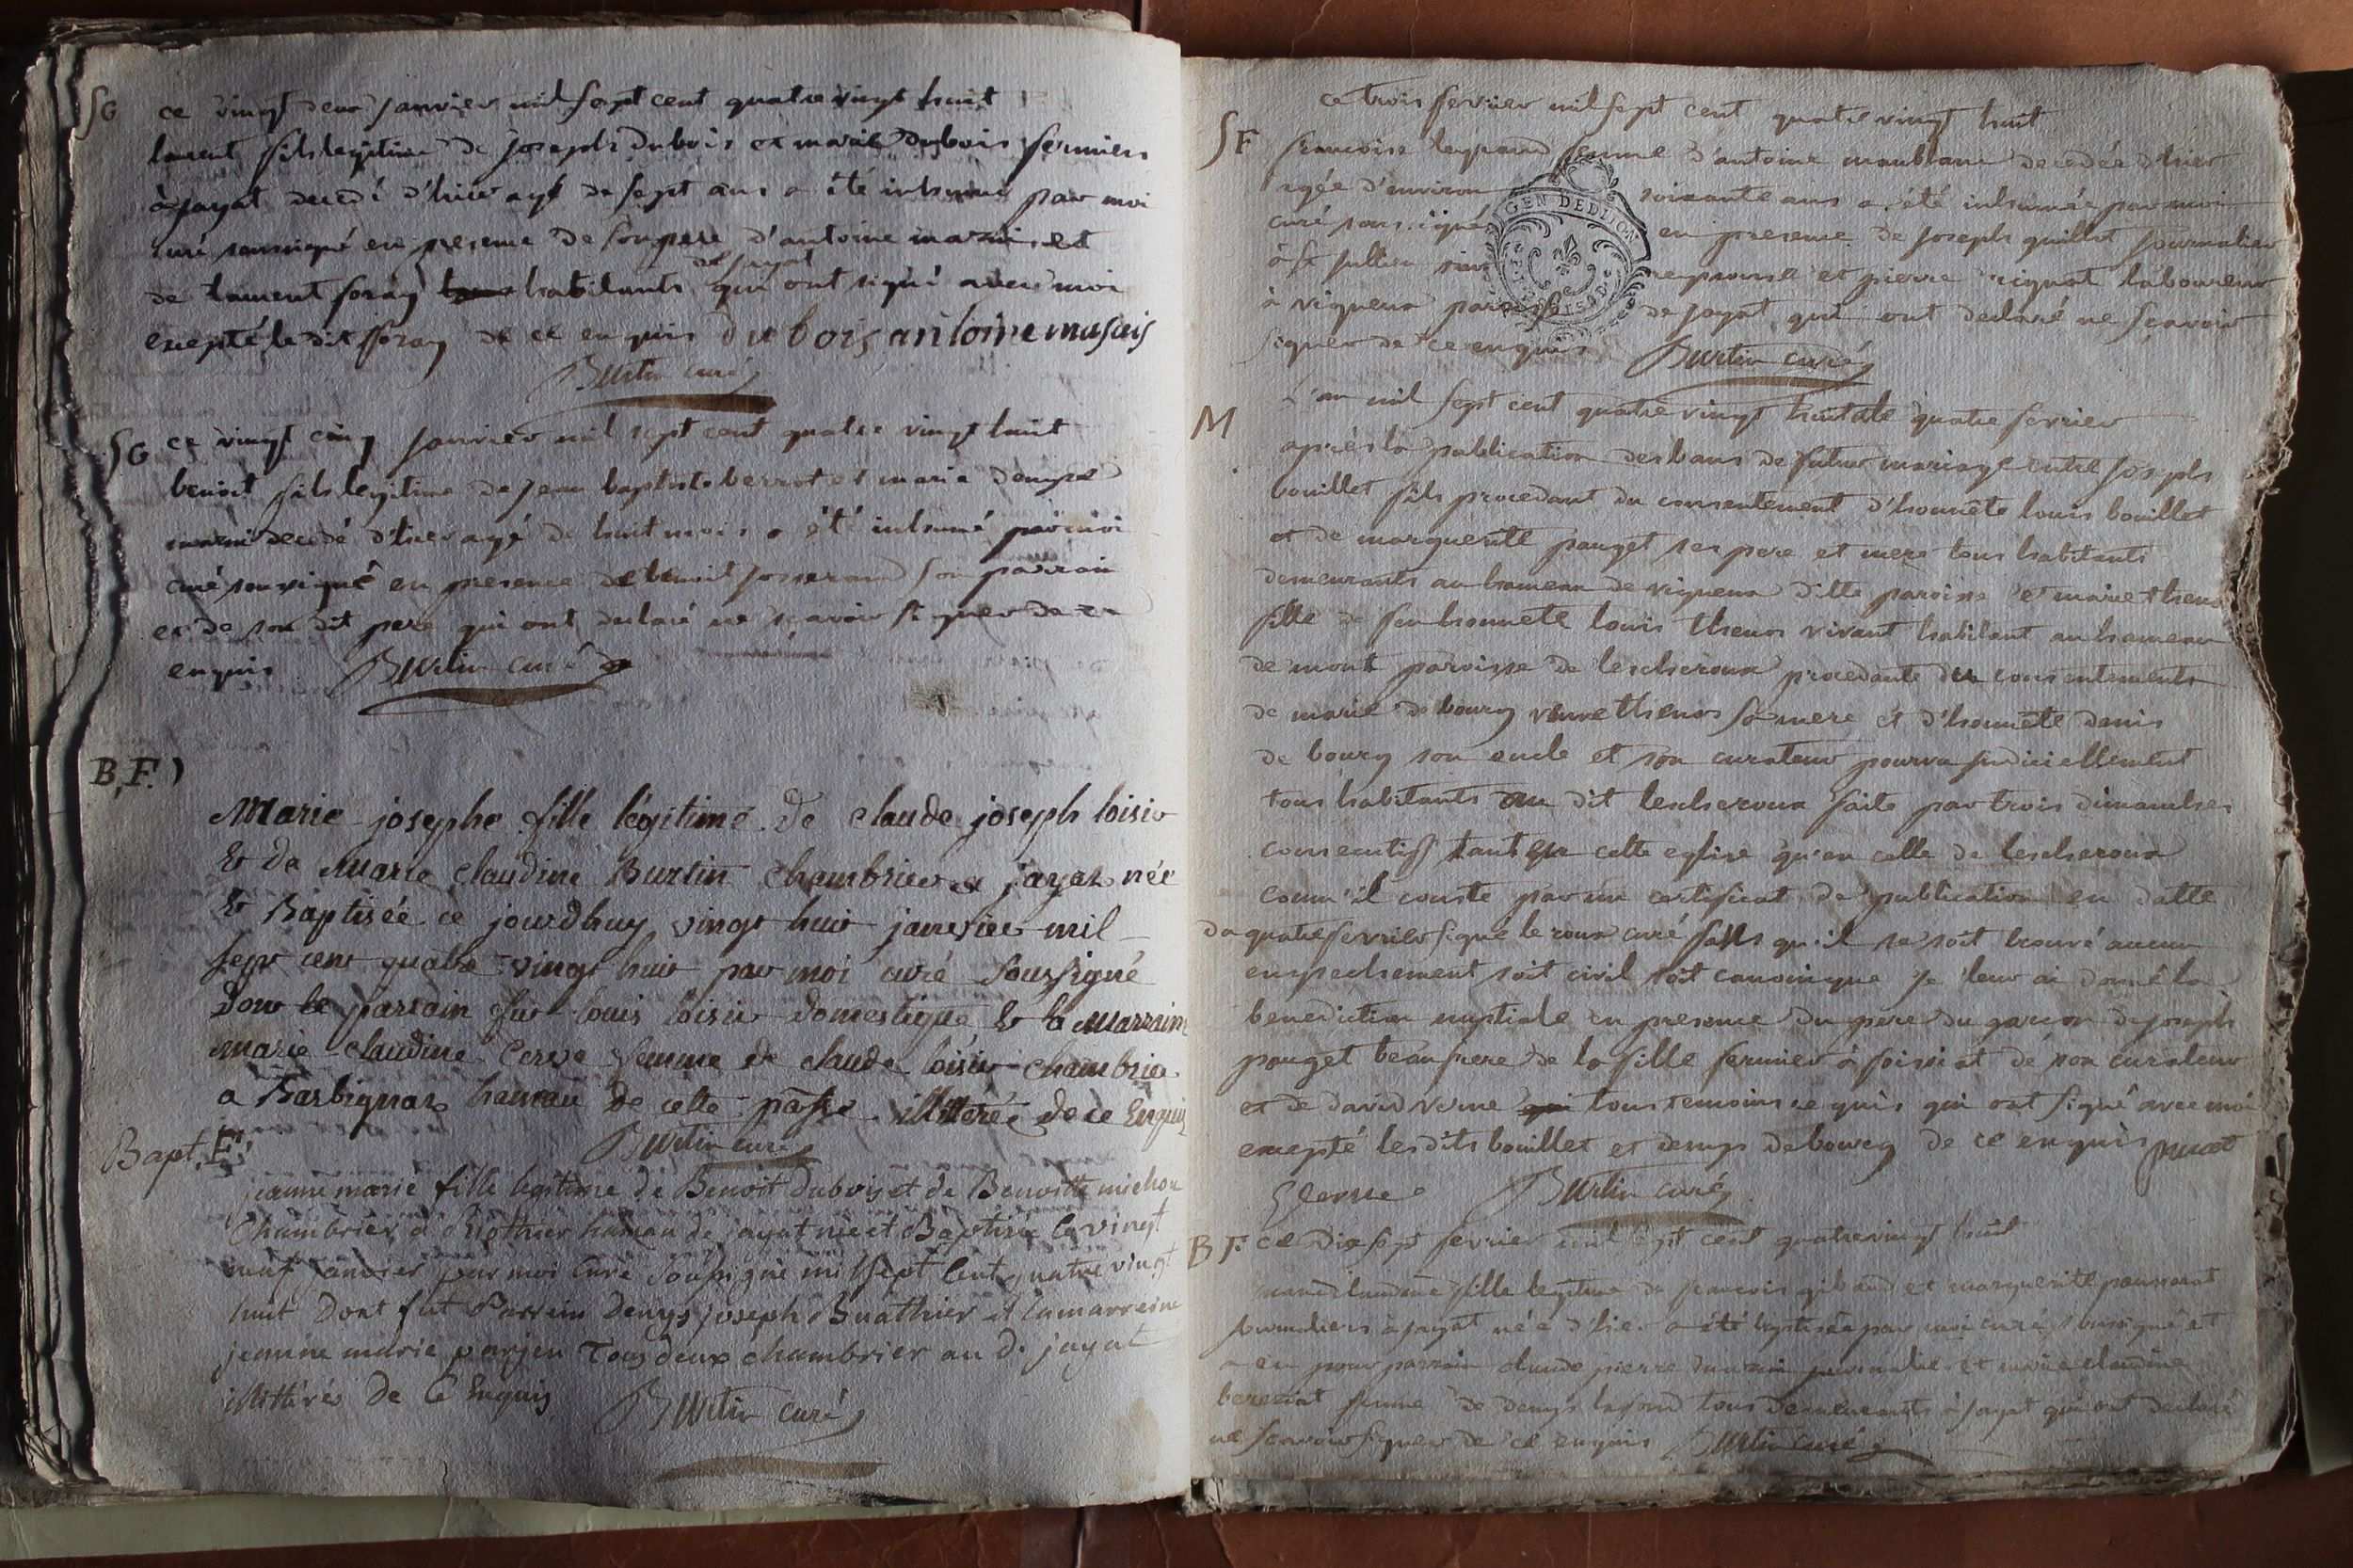 SG
ce vingt deux janvier mil sept cent quatre vingt huit
laurent fils legitime de joseph dubois et marie dubois fermiers
à jayat decedé d'hier agé de sept ans a été inhumé par moi
curé soussigné en presence de son pere d'antoine marais et
de jayat
de laurent foray habitants qui ont signé avec moi
excepté le dit foray de ce enquis dubois antoine masais
Burtin curé
SG
ce vingt cinq janvier mil sept cent quatre vingt huit
benoit fils legitime de jean baptiste berrot et marie
decedé d'hier agé de huit mois a été inhumé par moi
curé soussigné en presence de benoit josserand son parrain
et de son dit pere qui ont declaré ne scavoir signer de ce
enquis Burtin curé
B.F.
Marie josephe fille légitime de claude joseph loisir
& de Marie claudine Burtin chambrier a jayat née
& Baptisée ce jourdhuy vingt huit janvier mil
sept cent quatre vingt huit par moi curé soussigné
dont le parrain fut louis loisir domestique & la Marraine
marie claudine femme de claude loisir chambrier
a Barbignat hameau de cette passe illiterés de ce Enquis
Burtin curé
Bapt. F.
jeanne marie fille legitime de Benoit dubois et de Benoitte michon
Chambrier à hameau de jayat née et Baptisée le vingt
neuf janvier par moi Curé Soussigné mil sept Cent quatre vingt
huit Dont fut Parrain Denys joseph Buathier et la marreine
jeanne marie parjeu Tous deux chambrier au d. jayat
illittérés de Ce Enquis Burtin curé
SF
ce trois fevrier mil sept cent quatre vingt huit
francoise legrand femme d'antoine maublanc decedée d'hier
agée d'environ soixante ans a été inhumée par moi
curé soussigné en presence de joseph guillot journalier
à st jullien sur reyssouse et pierre rignat laboureur
à vigneux paroisse de jayat qui ont declaré ne scavoir
signer de ce enquis Burtin curé
GEN DE DIJON
M
L'an mil sept cent quatre vingt huit et le quatre fevrier
après la publication des bans de futur mariage entre joseph
bouillet fils procedant du consentement d'honnête louis bouillet
et de marguerite pauget ses pere et mere tous habitants
demeurants au hameau de vigneux ditte paroisse et marie thenos
fille de feu honnete louis thenos vivant habitant au hameau
de mont paroisse de lescheroux procedante des consentements
de marie de bourg veuve thenos sa mere et d'honnête denis
de bourg son oncle et son curateur pourvu judiciellement
tous habitants au dit lescheroux faite par trois dimanches
consecutifs tant en cette eglise qu'en celle de lescheroux
comm'il conste par un certificat de publication en datte
du quatre fevrier signé le roux curé sans qu'il se soit trouvé aucun
empechement soit civil soit canonique je leur ai donné la
benediction nuptiale en presence du pere du garcon de joseph
pouget beaufrere de la fille fermier à foissiat de son curateur
et de david verne qui tous temoins requis qui ont signé avec moi
excepté lesdits bouillet et denys debourg de ce enquis
Burtin curé
BF.
ce dix sept fevrier mil sept cent quatre vingt huit
marie claudine fille legitime de francois giband et marguerite
journaliers à jayat née d'hier a été baptisée par moi curé soussigné et
a eu pour parrain claude pierre journalier et marie claudine
bereziat femme de denys lafond tous demeurants à jayat qui ont declaré
ne scavoir signer de ce enquis Burtin curé